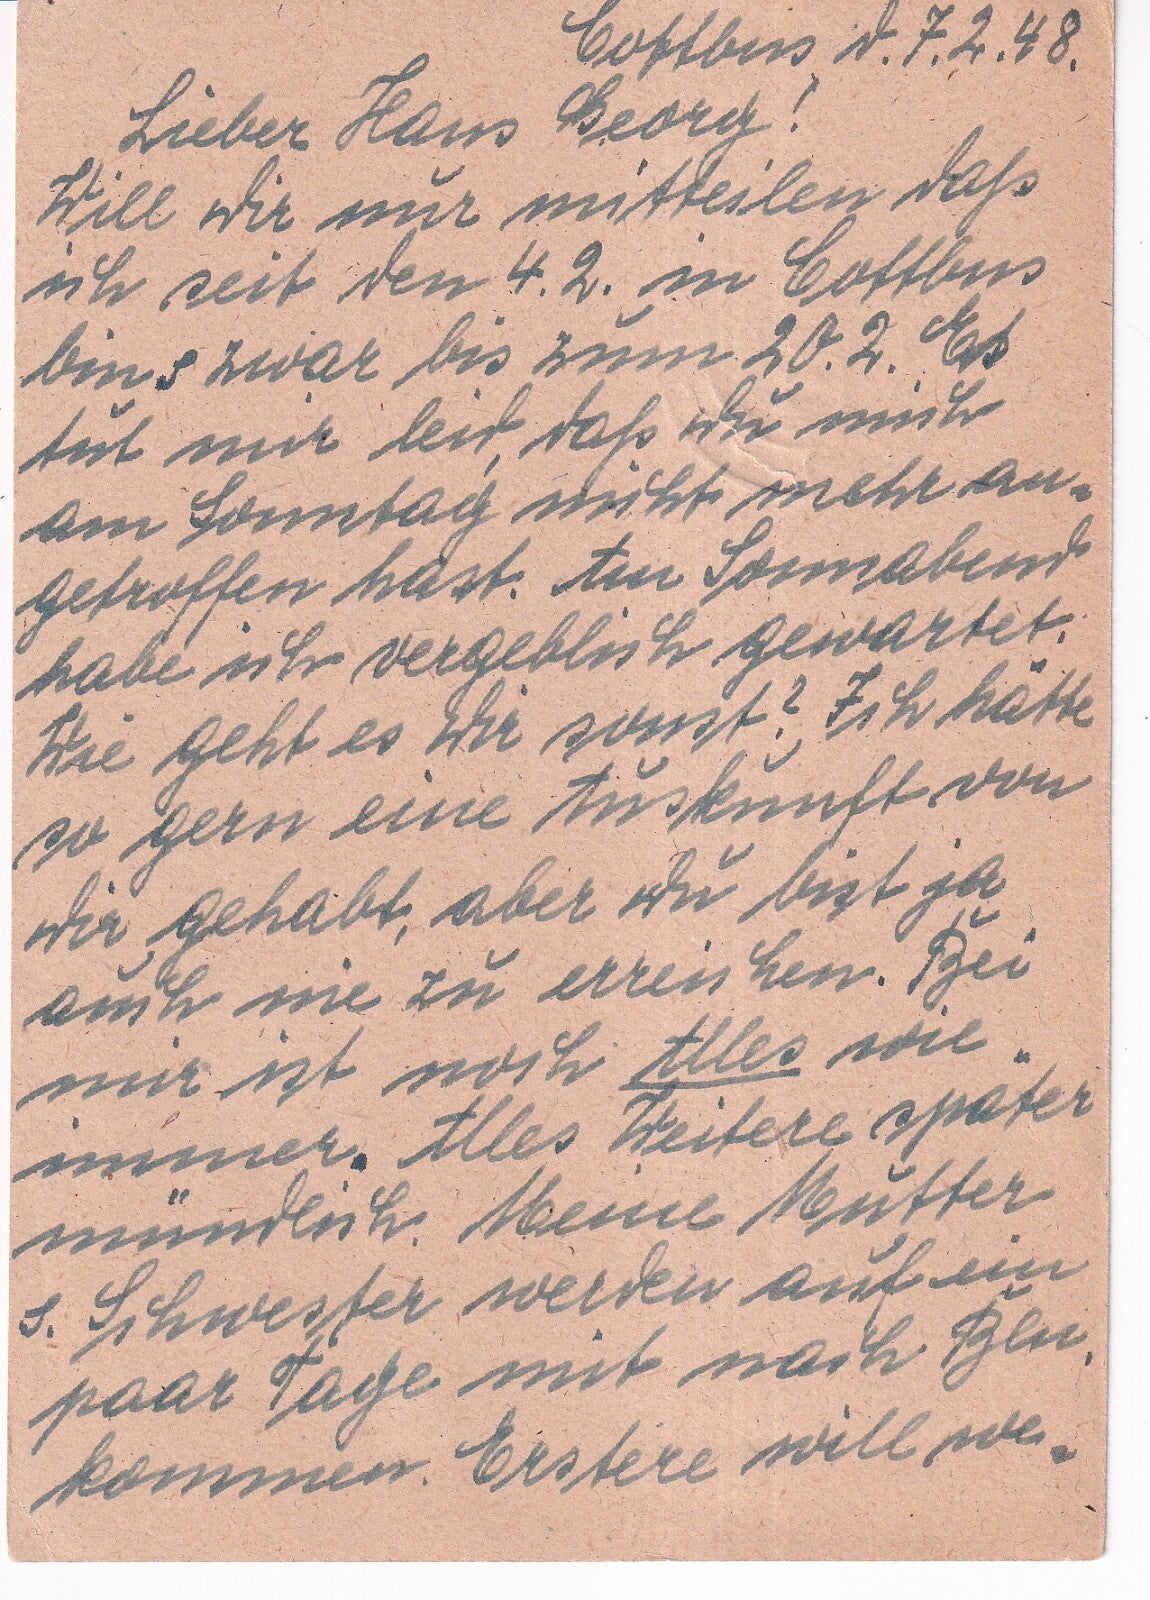 Cottbus d. 7.2.48.
Lieber Hans Georg!
Will Dir nur mitteilen daß
ich seit den 4.2. in Cottbus
bin u. zwar bis zum 20.2. Es
tut mir leid, daß Du mich
am Sonntag nicht mehr an-
getroffen hast. Am Sonnabend
habe ich vergeblich gewartet.
Wie geht es Dir sonst? Ich hätte
so gern eine Auskunft von
Dir gehabt, aber Du bist ja
auch nie zu erreichen. Bei
mir ist noch Alles wie
immer. Alles Weitere später
mündlich. Meine Mutter
u. Schwester werden auf ein
paar Tage mit nach Bln.
kommen. Erstere will we-